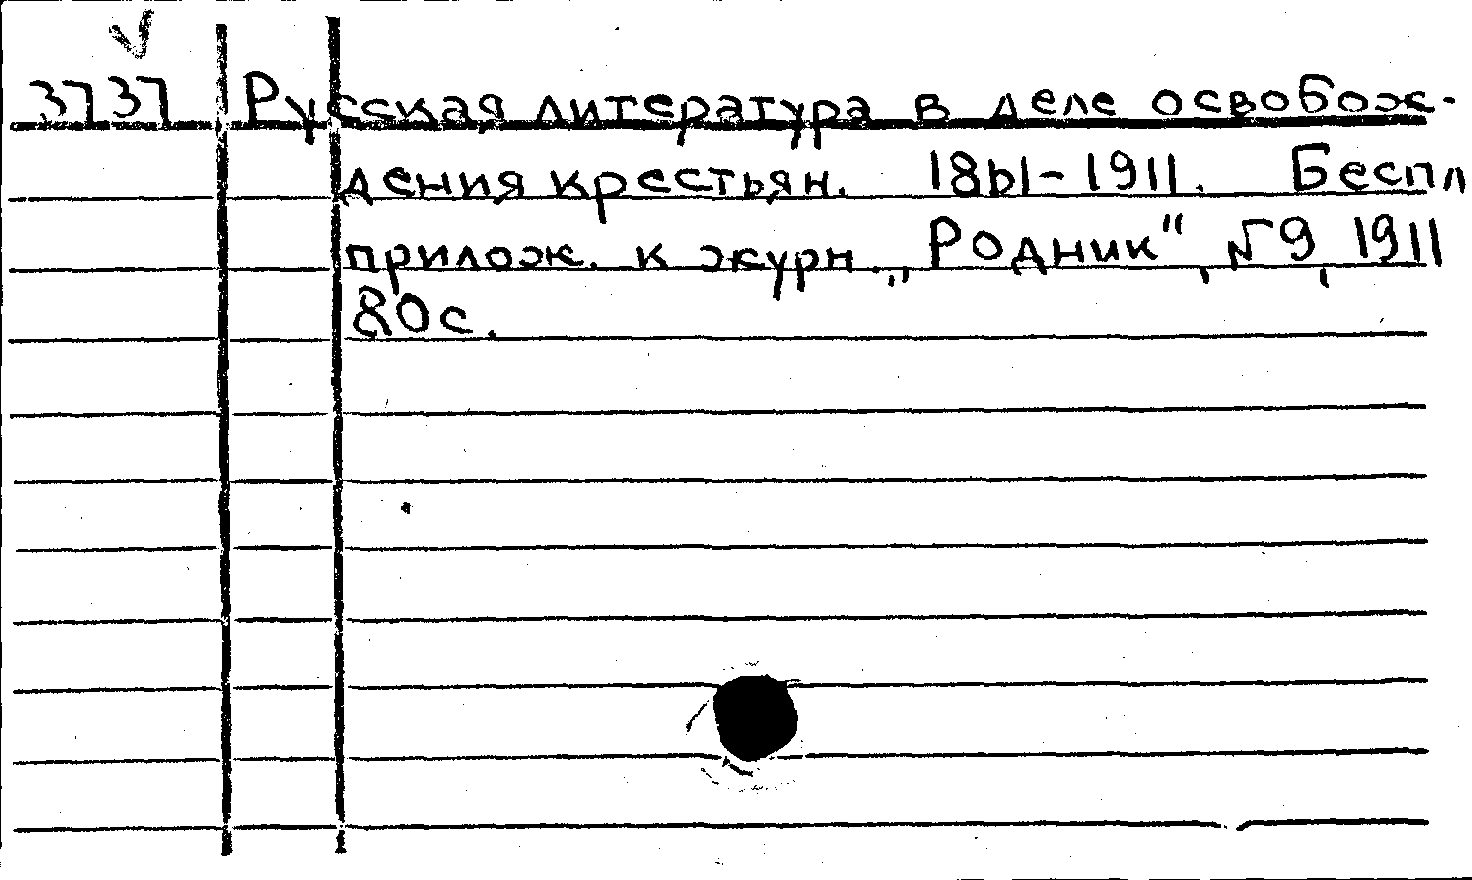 3737 Русская литература в деле освобож-
дения крестьян. 1861-1911. Беспл
прилож. к журн. „Родник“, №9, 1911
80с.